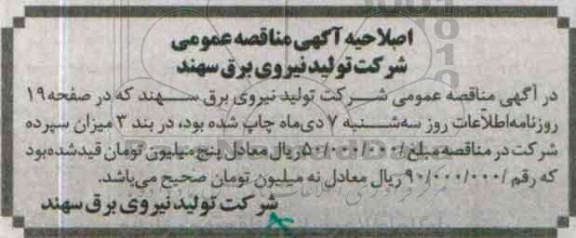 اصلاحیه آگهی مناقصه عمومی
شرکت تولید نیروی برق سهند
در آگهی مناقصه عمومی شرکت تولید نیروی برق سهند که در صفحه ۱۹
روزنامه اطلاعات روز سه‌شنبه ۷ دی‌ماه چاپ شده بود، در بند ۳ میزان سپرده
شرکت در مناقصه مبلغ ۵۰/۰۰۰/۰۰۰/ ریال معادل پنج میلیون تومان قید شده بود
که رقم ۹۰/۰۰۰/۰۰۰/ ریال معادل نه میلیون تومان صحیح می‌باشد.
شرکت تولید نیروی برق سهند